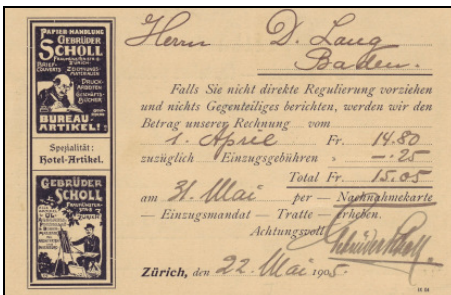 PAPIER-HANDLUNG
GEBRÜDER
SCHOLL
ZÜRICH
BRIEF-
COUVERTS
ZEICHNUNGS-
MATERIALIEN
DRUCK-
ARBEITEN
GESCHÄFTS-
BÜCHER
BUREAU
ARTIKEL!
Spezialität:
Hotel-Artikel.
GEBRÜDER
SCHOLL
ZÜRICH
Herrn D. Lang
Baden.
Falls Sie nicht direkte Regulierung vorziehen
und nichts Gegenteiliges berichten, werden wir den
Betrag unserer Rechnung vom
1. April Fr. 14.80
zuzüglich Einzugsgebühren » —.25
Total Fr. 15.05
am 31. Mai per — Nachnahmekarte
— Einzugsmandat — Tratte — erheben.
Achtungsvoll
Gebrüder Scholl
Zürich, den 22. Mai 1905.